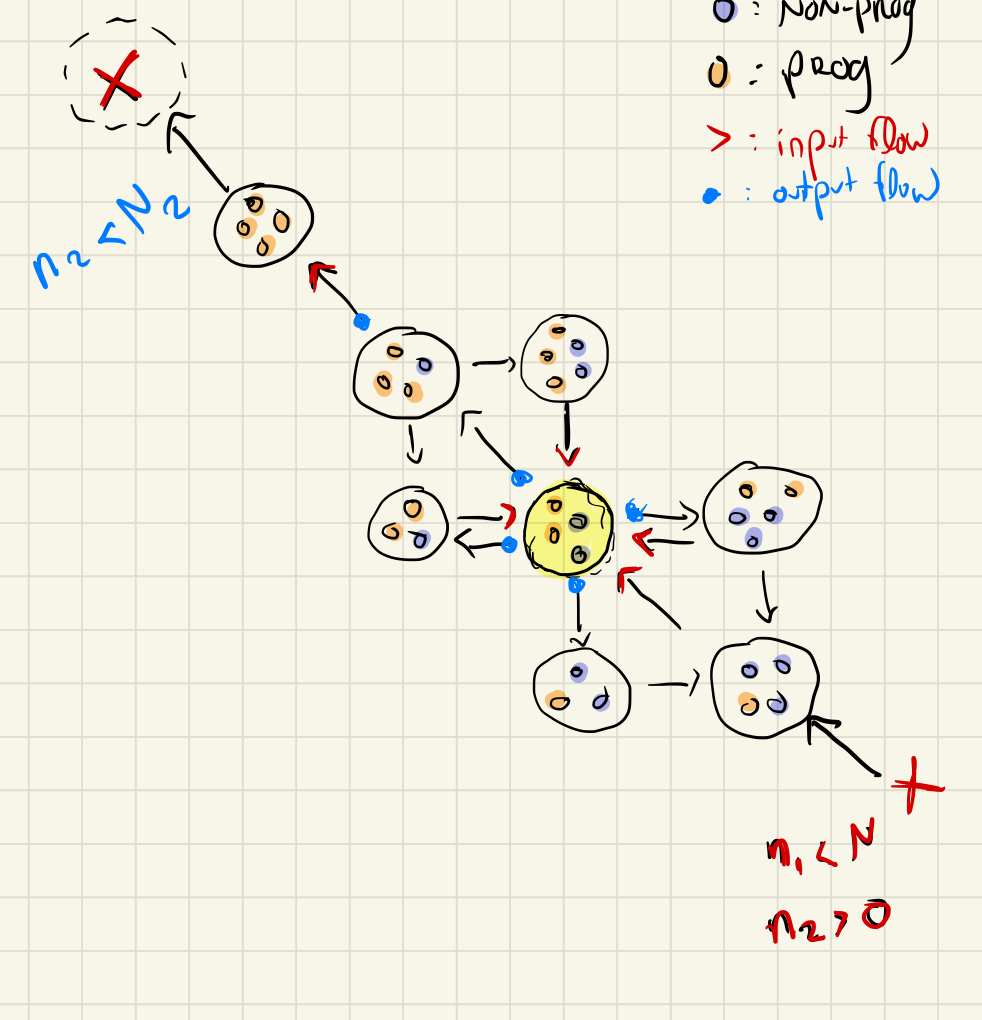 : Non-prog
: prog
> : input flow
: output flow
n₂ < N₂
n₁ < N
n₂ > 0